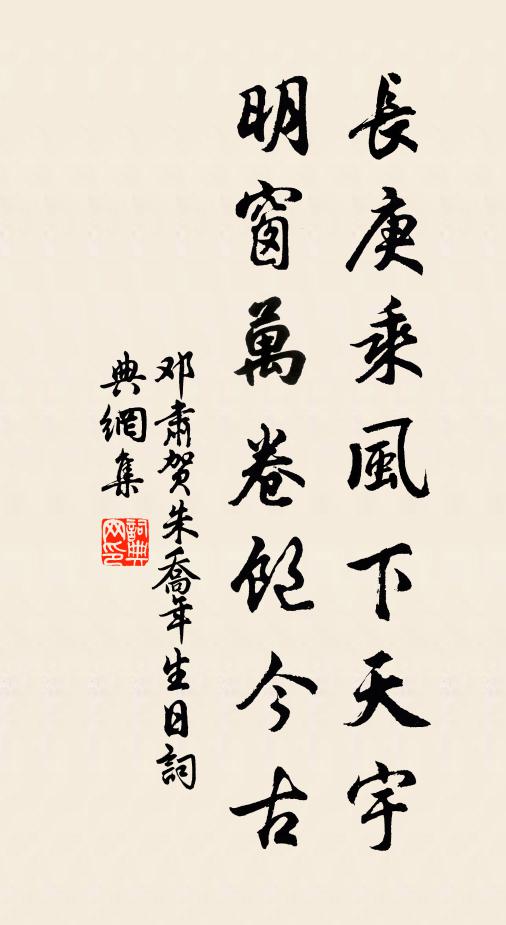 長庚乘風下天宇
明窗萬卷飽今古
邓肅賀朱喬年生日詞
典網集
詞典网印